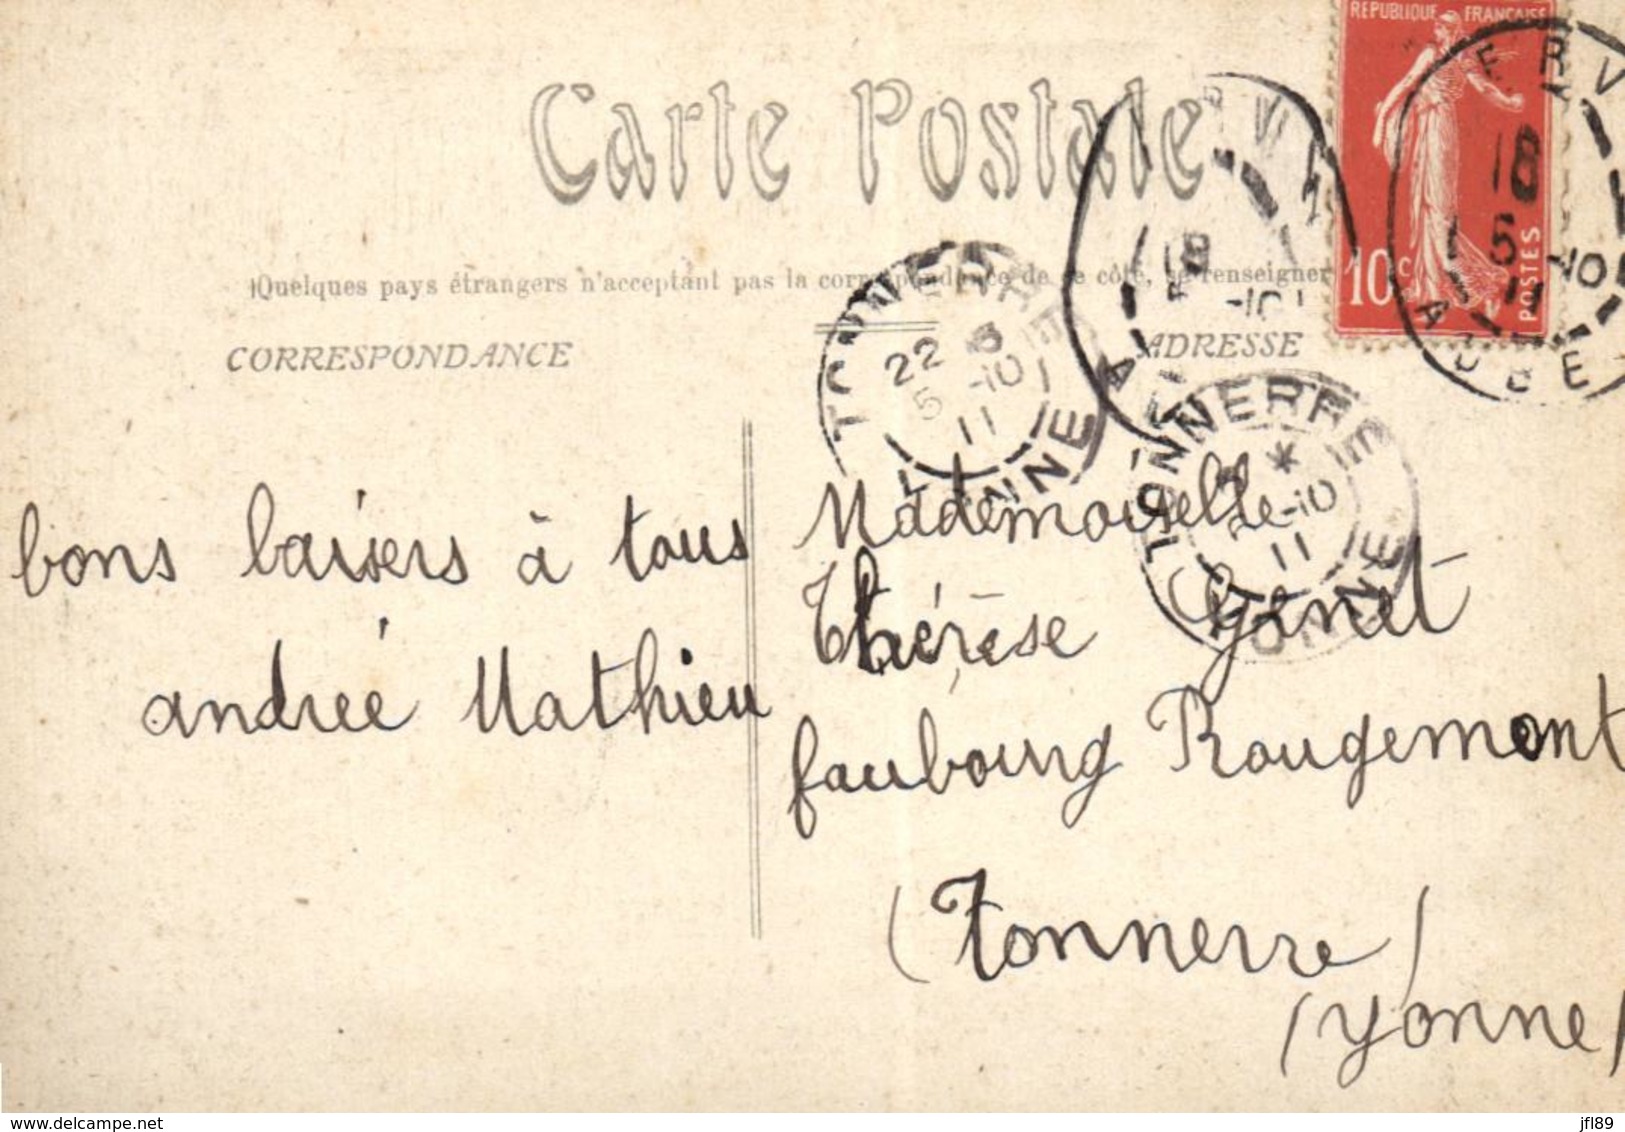 Carte Postale
RÉPUBLIQUE FRANÇAISE
10c
POSTES
Quelques pays étrangers n'acceptent pas la correspondance de ce côté, se renseigner
CORRESPONDANCE
ADRESSE
ERV
18
5 -10
11
AUBE
18
-10
TONNERRE
22
5 -10
11
YONNE
TONNERRE
*
-10
11
YONNE
bons baisers à tous
andrée Mathieu
Mademoiselle
Thérèse Genet
faubourg Rougemont
(Tonnerre)
(Yonne)
delcampe.net
jfl89